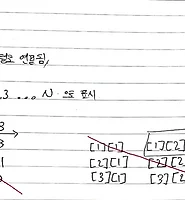 연결됨,
3 .... N 으로 표시
3
3 [1][1] [1][2]
1 [2][1] [2][2]
[3][1] [3][2